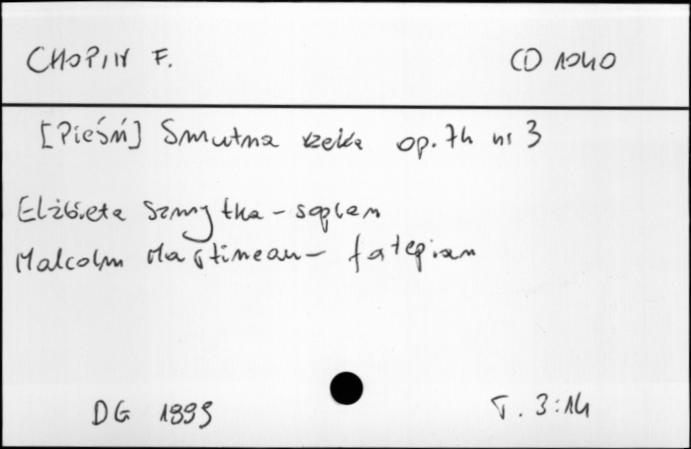 CHOPIN F. CD 1040
[Pieśń] Smutna rzeka op. 74 nr 3
Elżbieta Szmytka - sopran
Malcolm Martineau - fortepian
DG 1999 T. 3:14